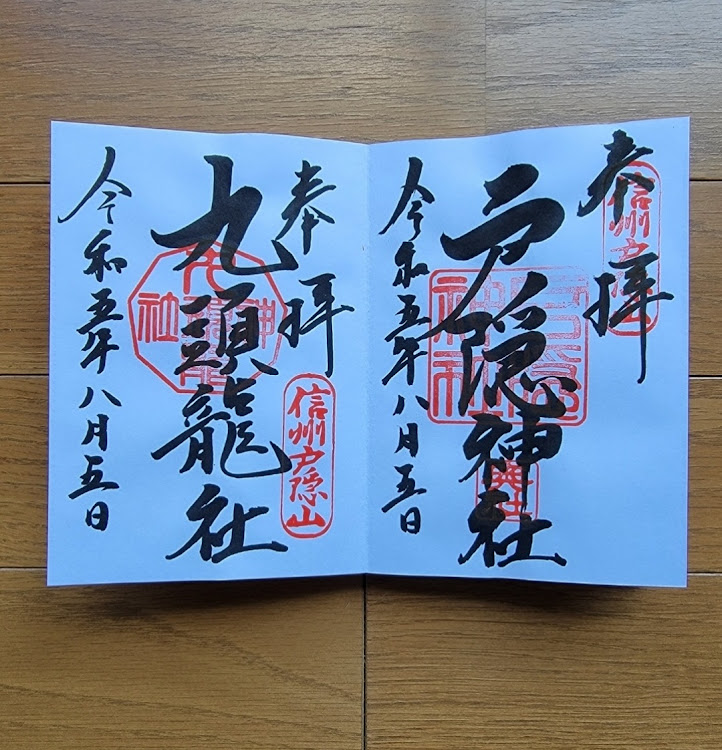 奉拝
信州戸隠山
戸隠神社
戸隠神社
奥社
令和五年八月五日
奉拝
信州戸隠山
九頭龍社
令和五年八月五日